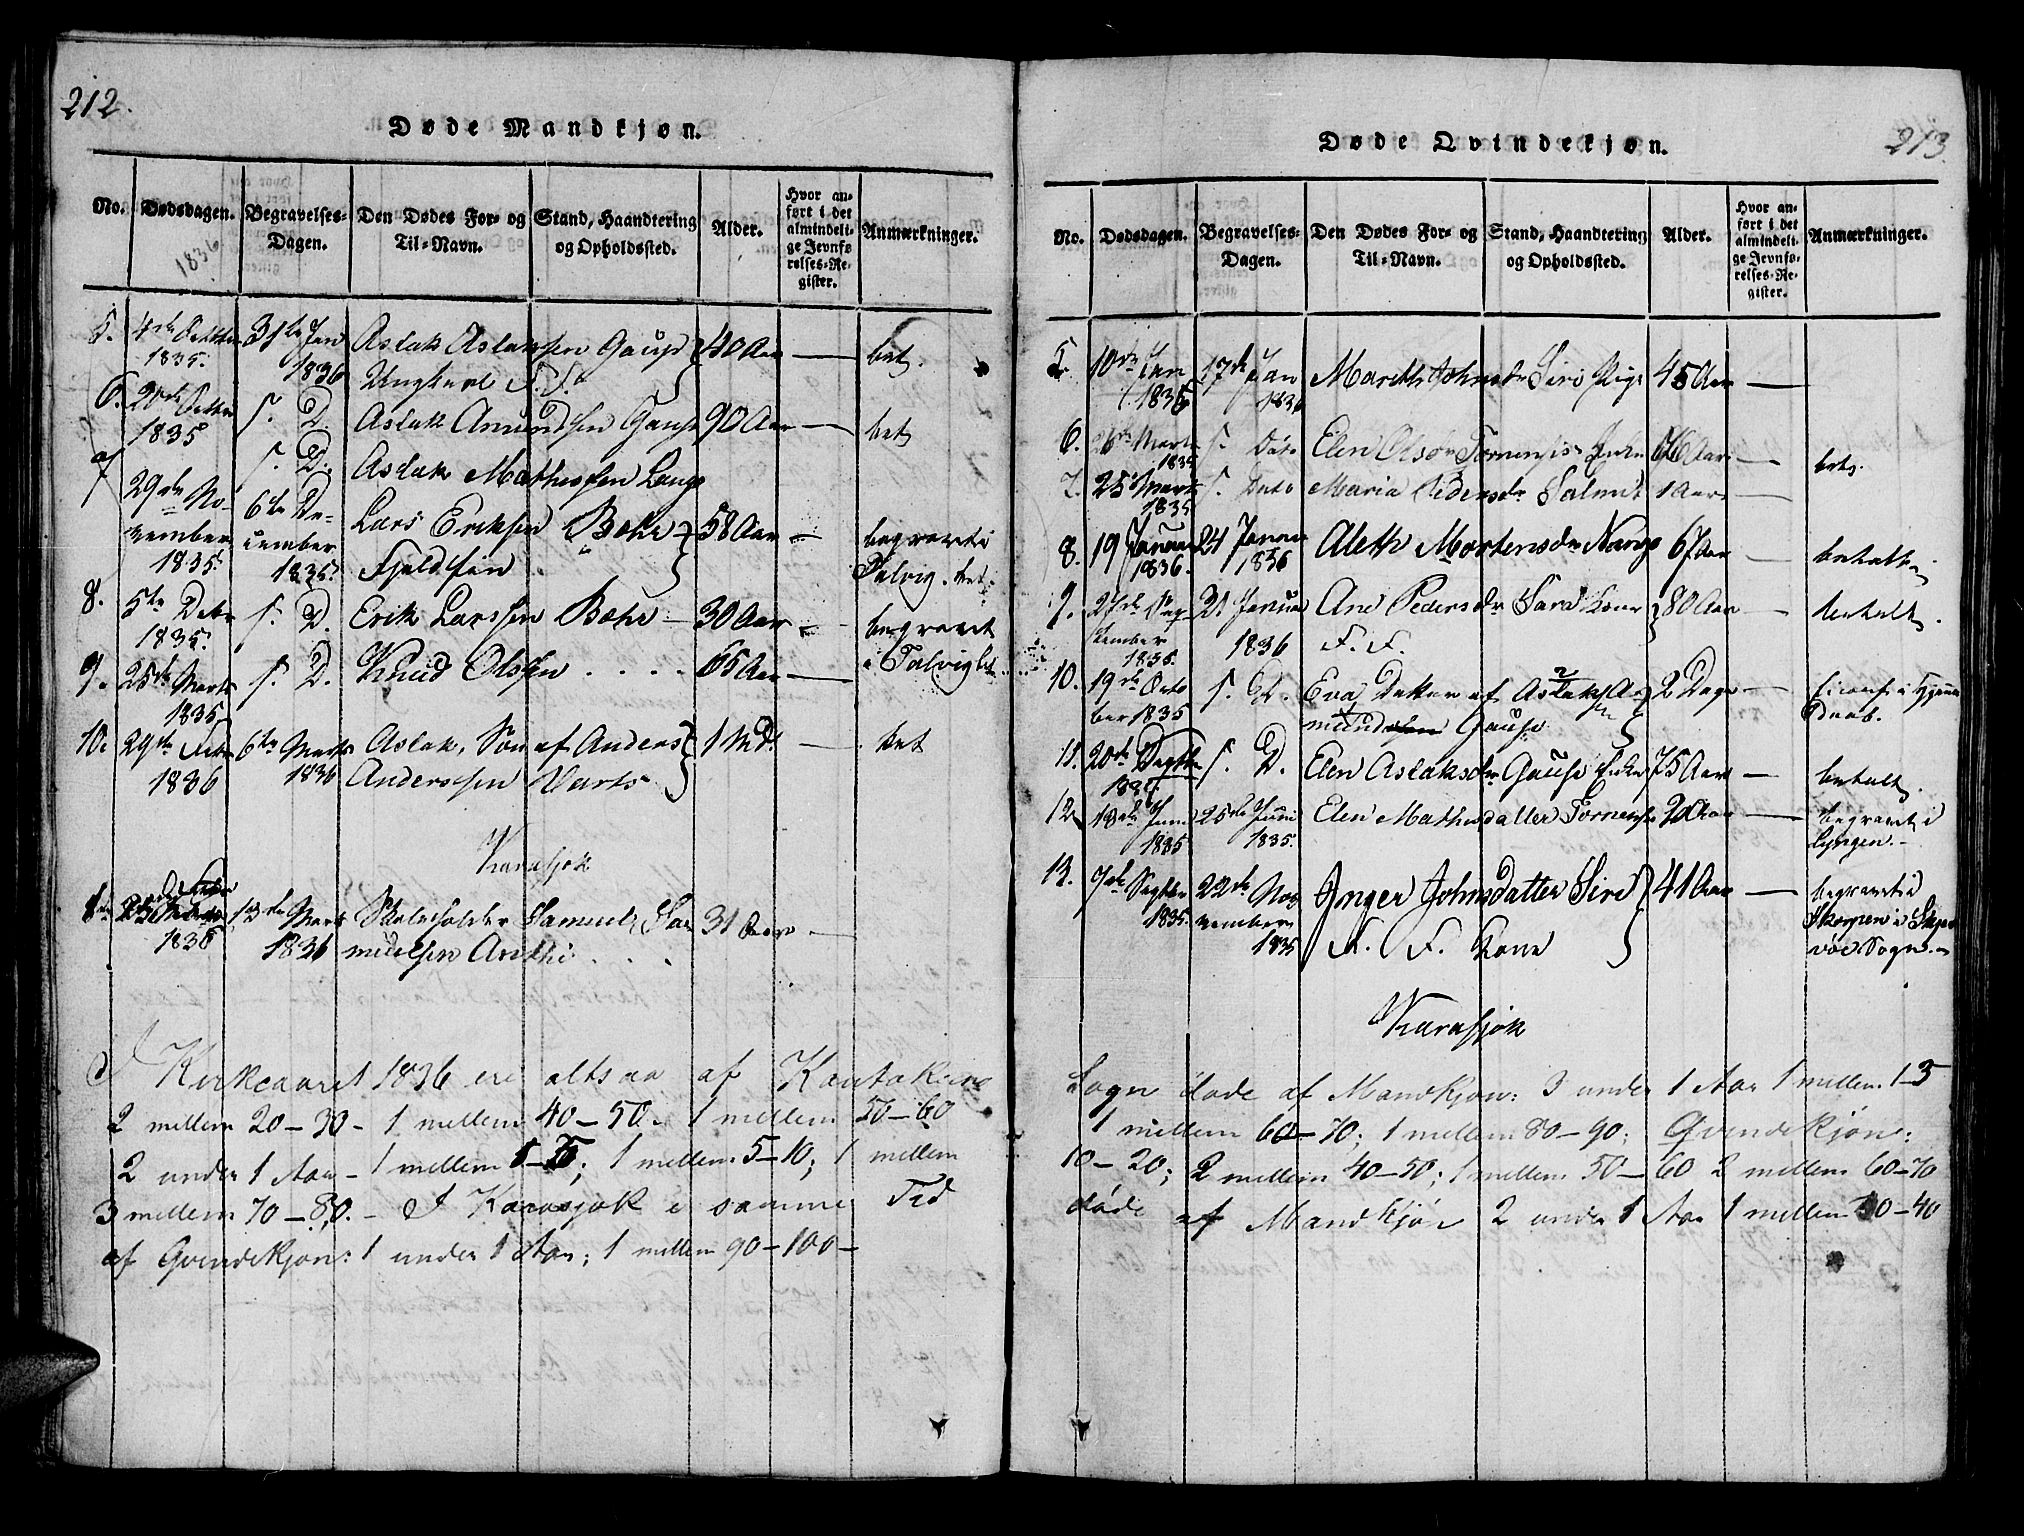 212.
Døde Mandkjøn.
No. Dødsdagen. Begravelses-Dagen. Den Dødes For- og Til-Navn. Stand, Haandtering og Opholdssted. Alder. Hvor anført i det almindelige Jevnførelses-Register. Anmærkninger.
1836
5. 4de 31te Jan Aslak Aslaksen Gaup 40 Aar — bet.
1835. 1836 Ungkarl F. F.
6. 20de S. D. Aslak Amundsen Gaup 90 Aar — bet
1835
7 S. D. Aslak Mathissen
29de No- 6te De- Lars Eriksen Bæhr 58 Aar — begravet i
vember cember Fjeldfin Talvig. bet.
1835. 1835.
8. 5te Debr S. D. Erik Larssen Bæhr — 30 Aar — begravet
1835. i Talvig bet
9. 25de Marts S. D. Knud Olssen . . . . 65 Aar —
1835
10. 29de Febr 6te Marts Aslak, Søn af Anders 1 Md. — bet
1836 1836 Anderssen Varts
Karasjok
13de Marts Skoleholder Samuel Sa- 31 Aar —
1836 1836 muelsen Anthi . . .
I Kirkeaaret 1836 ere altsaa af Kautokeino
2 mellem 20-30 - 1 mellem 40-50. 1 mellem 50-60
2 under 1 Aar - 1 mellem 1-5; 1 mellem 5-10; 1 mellem
3 mellem 70-80. - I Karasjok i samme Tid
af Qvindekjøn: 1 under 1 Aar; 1 mellem 90-100-
213.
Døde Qvindekjøn.
No. Dødsdagen. Begravelses-Dagen. Den Dødes For- og Til-Navn. Stand, Haandtering og Opholdssted. Alder. Hvor anført i det almindelige Jevnførelses-Register. Anmærkninger.
5 10de Jan 17de Jan Marith Johnsdr Siri Pige 45 Aar —
1836 1836
6. 26de Marts S. Dato Elen Olsdr Tornensis Enke 66 Aar — bet.
1835
7. 25 Marts S. Dato Maria Pedersdr 1 Aar —
1835
8. 19 Januar 24 Januar Aleth Mortensdr 67 Aar — betalt
1836. 1836
9. 27de Sep- 21 Januar Ane Pedersdr Sara Kone 80 Aar — betalt.
tember 1835. 1836 F. F.
10. 19de Octo- S. D. Eva Datter af Aslak A- 2 Dage —
ber 1835 mundsen Gaup
11. 20de Septbr S. D. Elen Aslaksdr Gaup Enke 75 Aar — betalt.
12 18de Juni 25de Juni Elen Mathisdatter Tornensis 20 Aar — begravet i
1835 1835. Lyngen.-
13. 7de Septbr 22de No- Inger Johnsdatter Siri 41 Aar — begravet i
1835. vember Skorpen i Skjer-
1835 N. F. Kone vøe Sogn.-
Karasjok
Sogn døde af Mandkjøn: 3 under 1 Aar 1 mellem 1-3
1 mellem 60-70; 1 mellem 80-90; Qvindekjøn:
10-20; 2 mellem 40-50; 1 mellem 50-60 2 mellem 60-70
døde af Mandkjøn 2 under 1 Aar 1 mellem 30-40